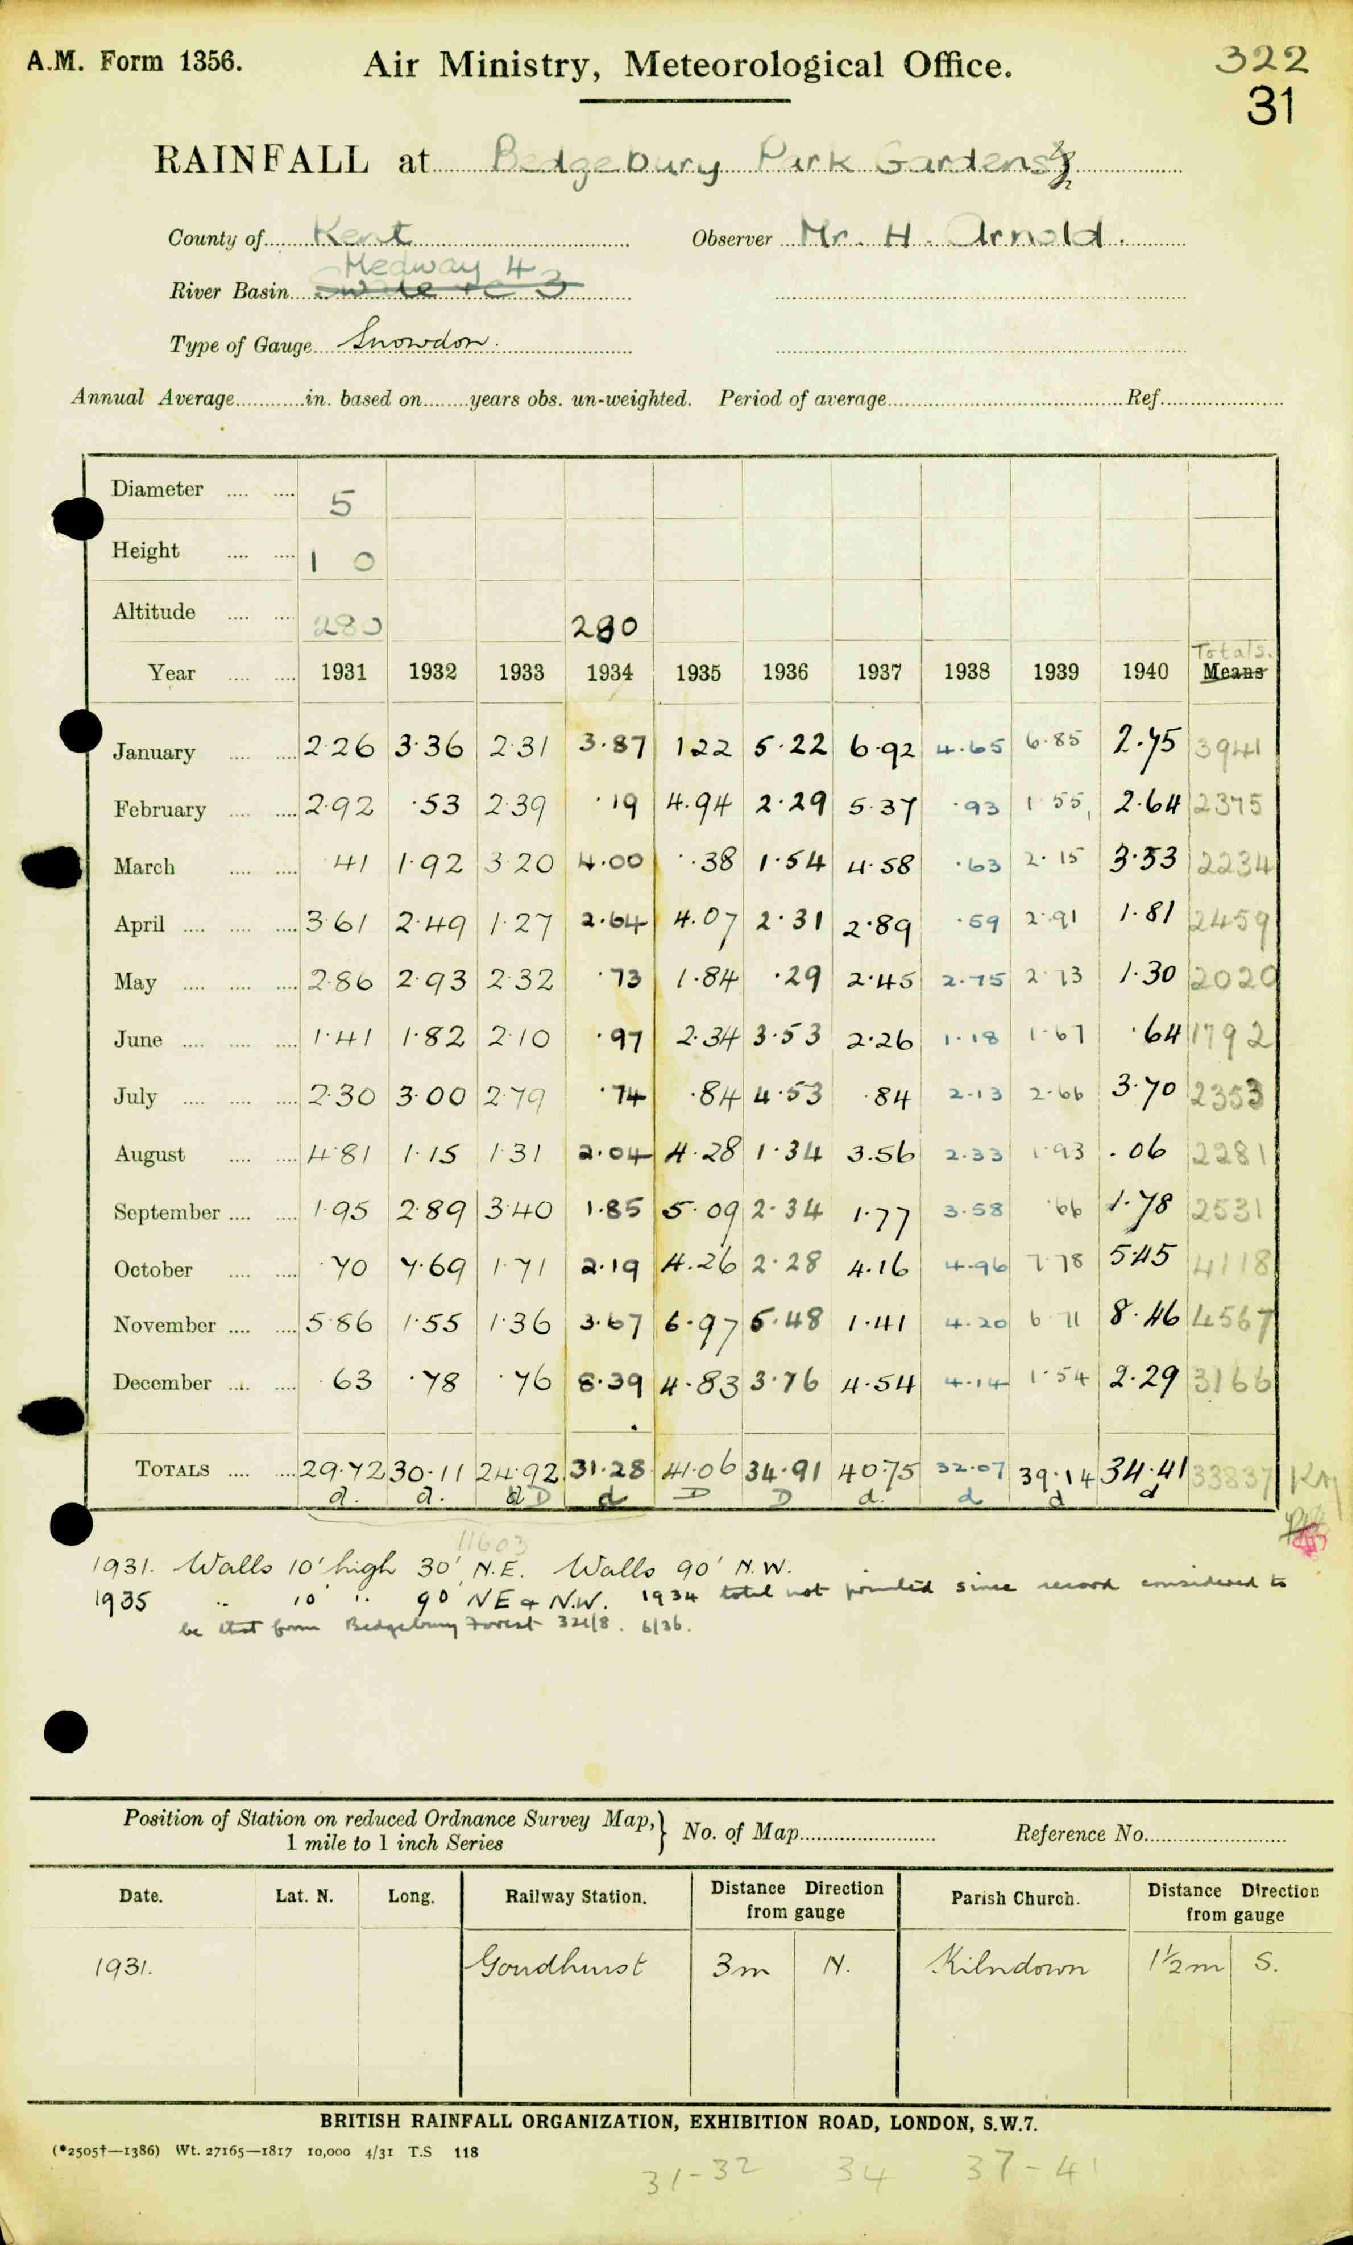 A.M. Form 1356.
Air Ministry, Meteorological Office.
322
31
RAINFALL at Bedgebury Park Gardens
County of Kent Observer Mr. H. Arnold.
Medway 4
River Basin
Type of Gauge Snowdon.
Annual Average in. based on years obs. un-weighted. Period of average Ref.
Diameter 5
Height 1 0
Altitude 280 280
Totals.
Year 1931 1932 1933 1934 1935 1936 1937 1938 1939 1940 Means
January 2·26 3·36 2·31 3·87 1 22 5·22 6·92 4·65 6·85 2·75 3941
February 2·92 ·53 2·39 ·19 4·94 2·29 5·37 ·93 1 55 2·64 2375
March 41 1·92 3 20 4·00 ·38 1·54 4·58 ·63 2·15 3·53 2234
April 3 61 2·49 1·27 2·64 4·07 2·31 2·89 ·59 2·91 1·81 2459
May 2·86 2·93 2·32 ·73 1·84 ·29 2·45 2·75 2 73 1·30 2020
June 1·41 1·82 2·10 ·97 2·34 3·53 2·26 1·18 1·67 ·64 1792
July 2·30 3·00 2·79 ·74 ·84 4·53 ·84 2·13 2·66 3·70 2353
August 4·81 1·15 1·31 2·04 4·28 1·34 3·56 2·33 1·93 ·06 2281
September 1·95 2·89 3·40 1·85 5·09 2·34 1·77 3·58 ·66 1·78 2531
October ·70 7·69 1·71 2·19 4·26 2·28 4·16 4·96 7·78 5·45 4118
November 5·86 1·55 1·36 3·67 6·97 5·48 1·41 4·20 6 71 8·46 4567
December ·63 ·78 ·76 8·39 4·83 3·76 4·54 4·14 1·54 2·29 3166
TOTALS 29·72 30·11 24·92 31·28 41·06 34·91 40·75 32·07 39·14 34·41 33837
d. d. D d D D d. d d d
11603
1931. Walls 10' high 30' N.E. Walls 90' N.W.
1935 " 10' " 90' NE & N.W. 1934 total not printed since record considered to
be that from Bedgebury Forest 321/8. 6/36.
Position of Station on reduced Ordnance Survey Map,
1 mile to 1 inch Series
No. of Map Reference No.
Date. Lat. N. Long. Railway Station. Distance Direction from gauge Parish Church. Distance Direction from gauge
1931. Goudhurst 3m N. Kilndown 1½m S.
BRITISH RAINFALL ORGANIZATION, EXHIBITION ROAD, LONDON, S.W.7.
(*2505†—1386) Wt. 27165—1817 10,000 4/31 T.S 118
31-32 34 37-41